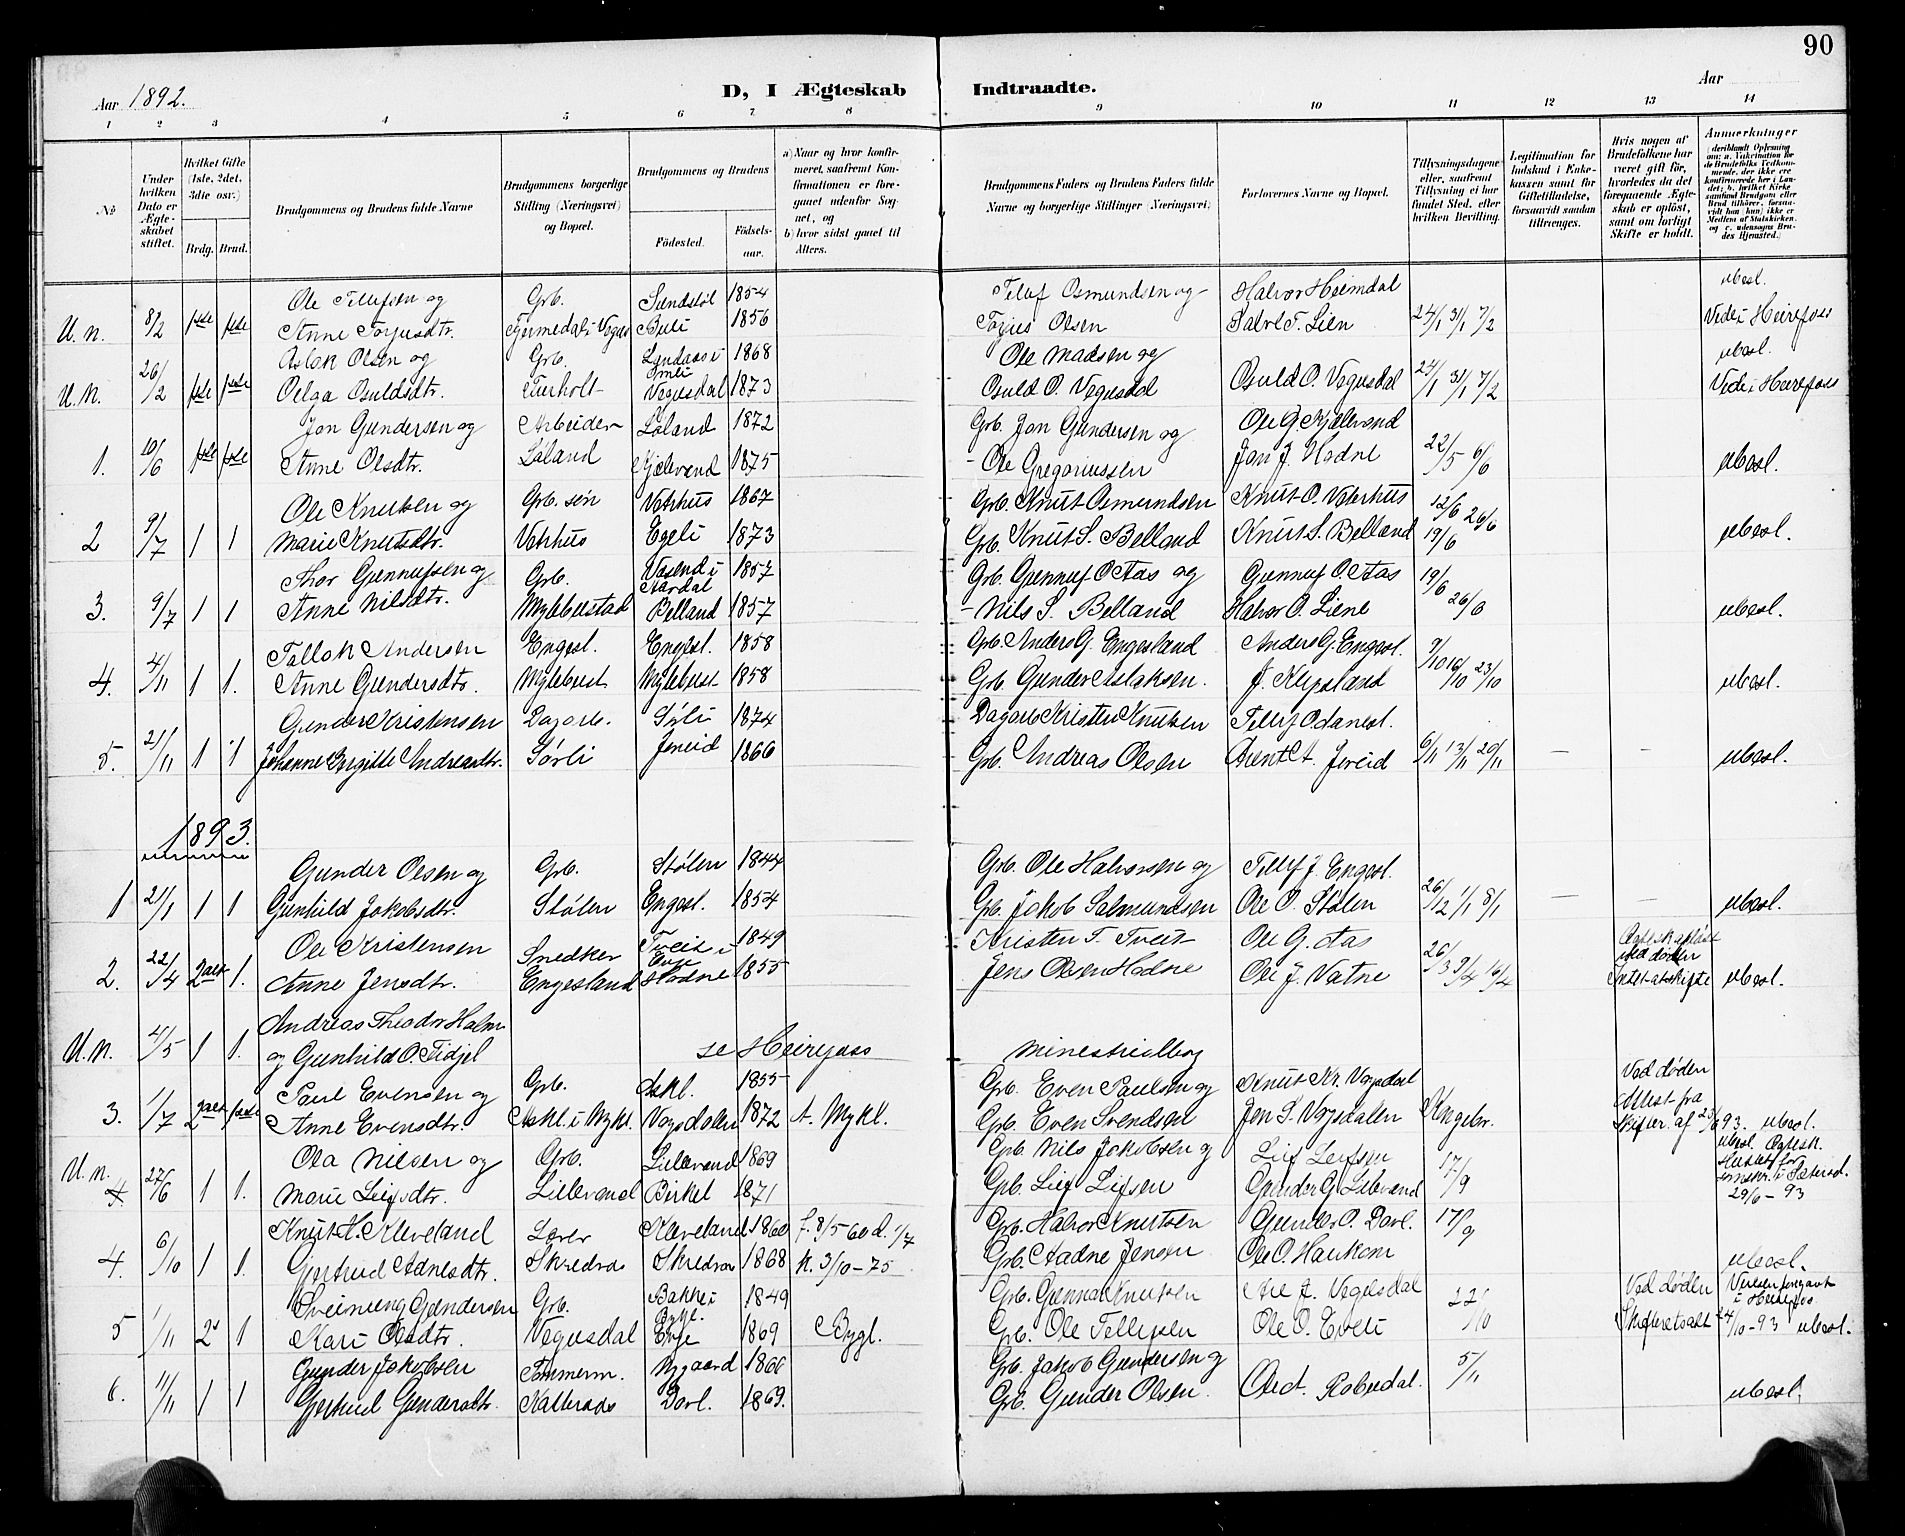 90
Aar 1892.
D, I Ægteskab Indtraadte.
Aar
1 2 3 4 5 6 7 8 9 10 11 12 13 14
No
Under hvilken Dato er Ægteskabet stiftet.
Hvilket Gifte (1ste, 2det, 3die osv.)
Brdg. Brud.
Brudgommens og Brudens fulde Navne
Brudgommens borgerlige Stilling (Næringsvei) og Bopæl.
Brudgommens og Brudens
Fødested. Fødselsaar.
a) Naar og hvor konfirmeret, saafremt Konfirmationen er foregaaet udenfor Sognet, og
b) hvor sidst gaaet til Alters.
Brudgommens Faders og Brudens Faders fulde Navne og borgerlige Stillinger (Næringsvei)
Forlovernes Navne og Bopæl.
Tillysningsdagene eller, saafremt Tillysning ei har fundet Sted, efter hvilken Bevilling.
Legitimation for Indskud i Enkekassen samt for Giftetilladelse, forsaavidt saadan tiltrænges.
Hvis nogen af Brudefolkene har været gift før, hvorledes da det foregaaende Ægteskab er opløst, samt om lovligt Skifte er holdt.
Anmærkninger (deriblandt Oplysning om: a. Vakcination for de Brudefolks Vedkommende, der ikke ere konfirmerede her i Landet; b. hvilket Kirkesamfund Brudgom eller Brud tilhører, forsaavidt han (hun) ikke er Medlem af Statskirken, og c. udensogns Brudes Hjemsted.)
Ole Tellefsen og Grb. Sundstøl 1854 Tellef Osmundsen og Halvor Heimdal ubesl.
U. n. 8/2 1ste 1ste Anne Torjusdtr. i Vegus 1856 Torjus Olsen Salve T. Lien 24/1 31/1 7/2 Viede i Heirefoss
Aslak Olsen og Grb. 1868 Ole Madsen og ubesl.
U. n. 26/2 1ste 1ste Olga Osuldsdtr. Vegusdal 1873 Osuld O. Vegusdal Osuld O. Vegusdal 24/1 31/1 7/2 Viede i Heirefoss
Jon Gundersen og Arbeider Løland 1872 Grb. Jon Gundersen og Ole G. Kjelevand
1. 10/6 1ste 1ste Anne Olsdtr. Løland Kjelevand 1875 - Ole Gregoriussen Jon J. Hodne 22/5 6/6 ubesl.
Ole Knutsen og Grb. søn Vatrhus 1867 Grb. Knut Osmundsen Knut O. Vaterhus 12/6 26/6
2 9/7 1 1 Marie Knutsdtr. Vatrhus Egeli 1873 Grb. Knut S. Belland Knut S. Belland 19/6 ubesl.
Thor Gunnufsen og Grb. Vasend i Aardal 1857 Grb. Gunnuf O. Aas og Gunnuf O. Aas 19/6
3. 9/7 1 1 Anne Nilsdtr. Myklebustad Belland 1857 - Nils S. Belland Halvor O. Liene 26/6 ubesl.
Tallak Andersen Engesl. Engesl. 1858 Grb. Anders G. Engesland Anders G. Engesl. 9/10 16/10 23/10
4. 4/11 1 1. Anne Gundersdtr. Myklebust Myklebust 1858 Grb. Gunder Aslaksen. J. Klepsland ubesl.
Gunder Kristensen Dagarb. Sørli 1874 Dagarb. Kristen Knutsen Tellef Odanesl.
5. 21/11 1 1 Johanne Birgitte Andreasdtr. Sørli Jereid 1866 Grb. Andreas Olsen Arent A. Jereid 6/11 13/11 20/11 — — ubesl.
1893.
Gunder Olsen og Grb. Stølen 1844 Grb. Ole Halvorsen og Tellef J. Engesl.
1 21/1 1 1 Gunhild Jakobsdtr. Stølen Engesl. 1854 Grb. Jakob Salmundsen Ole O. Stølen 26/12 1/1 8/1 — — ubesl.
Ole Kristensen Snedker Tveit i Evje 1849 Kristen T. Tveit Ole G. Aas Ægtesk. opløst ved døden
2. 22/4 2det 1. Anne Jensdtr. Engesland Hodne 1855 Jens Olsen Hodne Ole J. Vatne 26/3 9/4 16/4 Intet at skifte ubesl.
Andreas Theodor Halm
U. n. 4/5 1 1. og Gunhild O. Tidjel se Heirefoss Ministerialbog
Paul Evensen og Grb. Askl. 1855 Grb. Even Paulsen og Knut Kr. Vegsdal Ved døden
3. 1/7 2det 1ste Anne Evensdtr. Askl. i Mykl. Vogsdalen 1872 A. Mykl. Grb. Even Svendsen Jon S. Vogsdalen Kongebr. Attest fra Skifter. af 23/6 93. ubesl.
Ola Nilsen og Grb. Lillevand 1869 Grb. Nils Jakobsen og Leif Leifsen 17/9 ubesl.
U. n. 4 27/6 1 1. Marie Leifsdtr. Lillevand Birkel 1871 Grb. Leif Leifsen Gunder G. Lillevand 29/6 - 93
Knut H. Kleveland Lærer Kleveland 1860 f. 8/5 60 d. 1/7 Grb. Halvor Knutsen Gunder O. Dovl. 17/9
4. 6/10 1 1. Gjertrud Adnesdtr. Skredvas Skredvas 1868 k. 3/10 - 75 Grb. Aadne Jensen Ole O. Haukom ubesl.
Sveinung Gundersen Grb. Bakke i Bygl. 1849 Grb. Gunnar Knutsen Are J. Vegusdal 22/10 Ved døden Vielsen foregaaet i Heirefos
5 1/11 2d 1 Kari Olsdtr. Vegusdal Evje 1869 Bygl. Grb. Ole Tellefsen Ole O. Eveli Skifteretsatt. 24/10 - 93 ubesl.
Gunder Jakobsen Tømmerm. Nygaard 1866 Grb. Jakob Gundersen og
6. 11/11 1 1 Gjertrud Gundersdtr. Katteraas Dovl. 1869. Grb. Gunder Olsen. 5/11 ubesl.